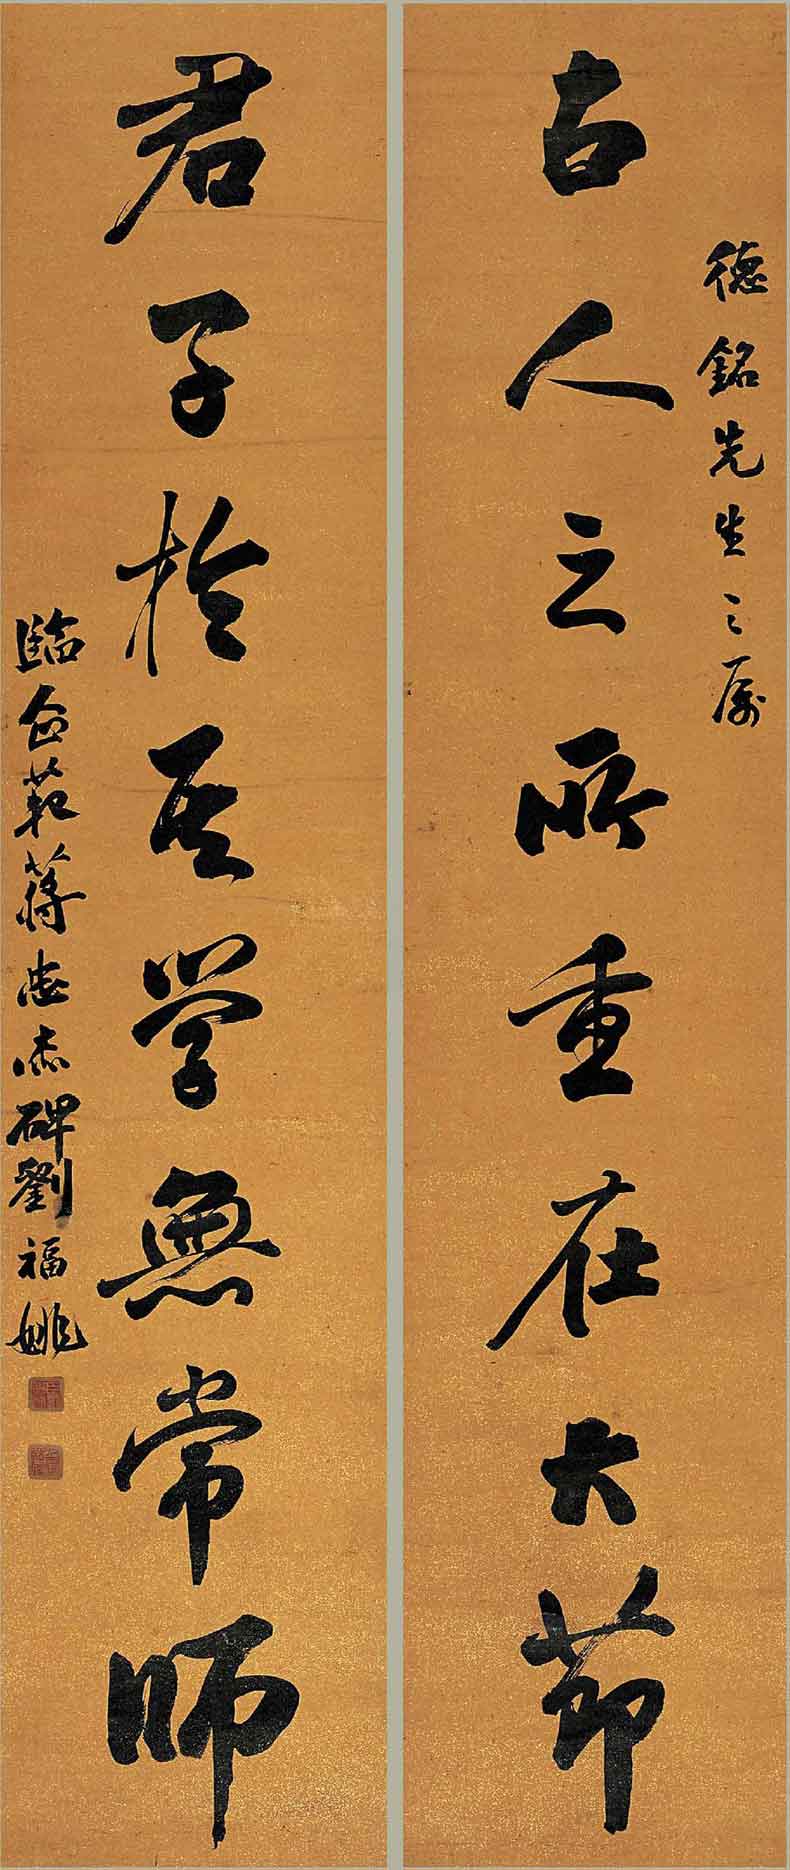 德銘先生之属
古人之所重在大節
君子於其學無常師
臨 蔣忠 碑劉福姚